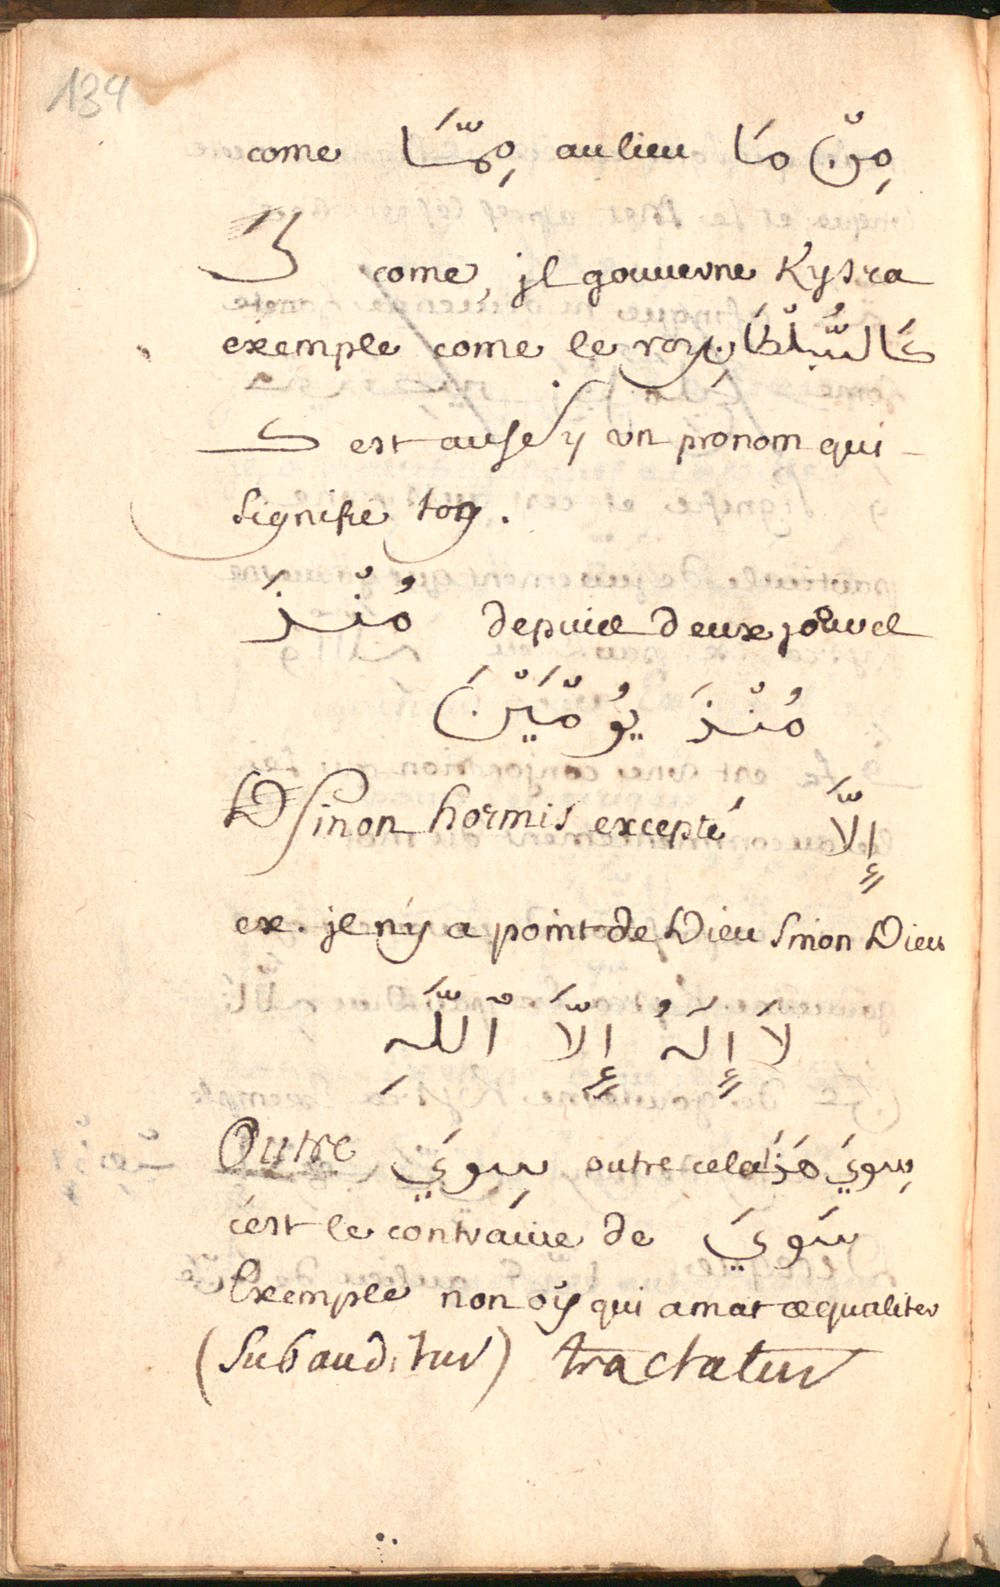 134
come مِمَّا au lieu مِنْ مَا
ك come, jl gouuerne Kysra
exemple come le roy كَالسُّلْطَانِ
ك est aussy vn pronom qui
signifie toy.
مُنْذَ depuis deux jours
مُنْذَ يُوْمَيْنَ
Sinon hormis excepté إِلاَّ
ex. jl n'y a point de Dieu sinon Dieu
لاَ إِلَهُ إِلاَّ اْللَّهِ
Outre سِوِيَ outre cela سِوِيَ هَذَا
c'est le contraire de سَوِيَ
Exemple non oÿ qui amat æqualiter
(Subauditur) tractatur